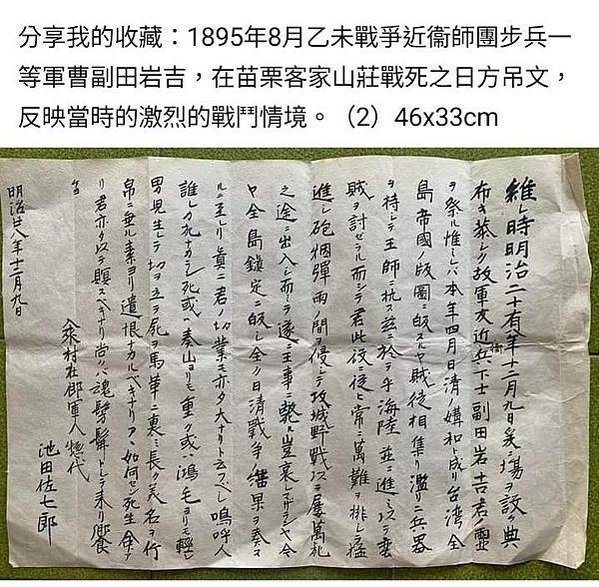 分享我的收藏：1895年8月乙未戰爭近衞師團步兵一
等軍曹副田岩吉，在苗栗客家山莊戰死之日方吊文，
反映當時的激烈的戰鬥情境。（2）46x33cm
維レ時明治二十有八年十二月九日ニ場ヲ設ケ典
布キ恭シク故軍友近衞兵下士副田岩吉君ノ靈
ヲ祭ル惟ミレバ本年四月日清ノ媾和ト成リ台湾全
島帝國ノ版圖ニ皈スルヤ賊徒相集リ濫リニ兵器
ヲ持シテ王師ニ抗ス茲ニ於テ乎海陸並ニ進ミ以テ
賊ヲ討セラル而シテ君此役ニ従ヒ常ニ萬難ヲ排シ猛
進シ砲烟彈雨ノ間ヲ侵シテ攻城野戦以テ屡萬死
之途ニ出入シ而シテ遂ニ王事ニ斃ル豈哀レマザランヤ今
ヤ全島鎮定ニ皈シ全ク日清戦争ノ結果ヲ奏ス
ルニ至レリ眞ニ君ノ功業モ亦タ大ナリト云フベシ嗚呼人
誰レカ死ナカラン死或ハ泰山ヨリモ重ク或ハ鴻毛ヨリモ輕シ
男児生レテ功ヲ立テ死ヲ馬革ニ裹ミ長ク美名ヲ竹
帛ニ垂ル素ヨリ遺恨ナカルベキナリアヽ如何セン死生命ア
リ君亦タ以テ瞑スベキナリ尚クハ魂髣髴トシテ来リ饗
ケヨ
入来村在郷軍人惣代
池田佐七郎
明治廿八年十二月九日